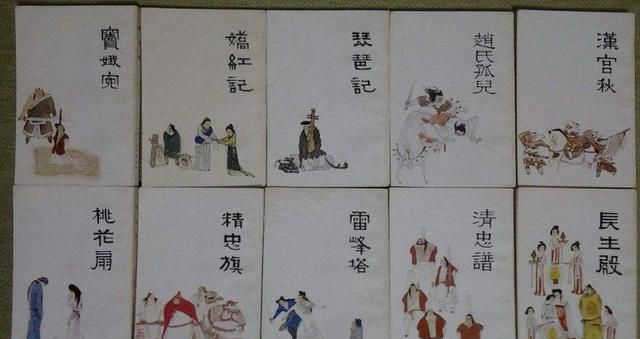 竇娥寃
嬌紅記
琵琶記
趙氏孤兒
漢宮秋
桃花扇
精忠旗
雷峰塔
清忠譜
長生殿